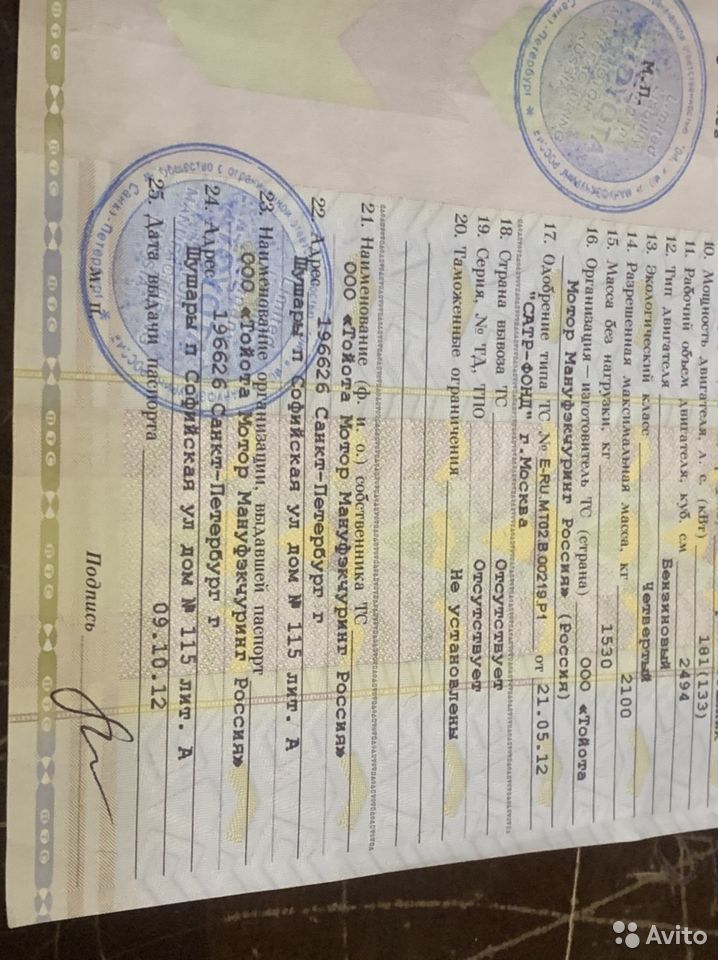 10. Мощность двигателя, л. с. (кВт) 181(133)
11. Рабочий объем двигателя, куб. см 2494
12. Тип двигателя Бензиновый
13. Экологический класс Четвертый
14. Разрешенная максимальная масса, кг 2100
15. Масса без нагрузки, кг 1530
16. Организация–изготовитель ТС (страна) ООО «Тойота
Мотор Мануфэкчуринг Россия» (Россия)
17. Одобрение типа ТС № E-RU.MT02.B.00219.P1 от 21.05.12
"САТР-ФОНД" г.Москва
18. Страна вывоза ТС Отсутствует
19. Серия, № ТД, ТПО Отсутствует
20. Таможенные ограничения Не установлены
21. Наименование (ф. и. о.) собственника ТС
ООО «Тойота Мотор Мануфэкчуринг Россия»
22. Адрес 196626 Санкт-Петербург г
Шушары п Софийская ул дом № 115 лит. А
23. Наименование организации, выдавшей паспорт
ООО «Тойота Мотор Мануфэкчуринг Россия»
24. Адрес 196626 Санкт-Петербург г
Шушары п Софийская ул дом № 115 лит. А
25. Дата выдачи паспорта 09.10.12
М. П. Подпись
М.П.
Санкт-Петербург
Санкт-Петербург
ПТС ПТС ПТС ПТС
Avito